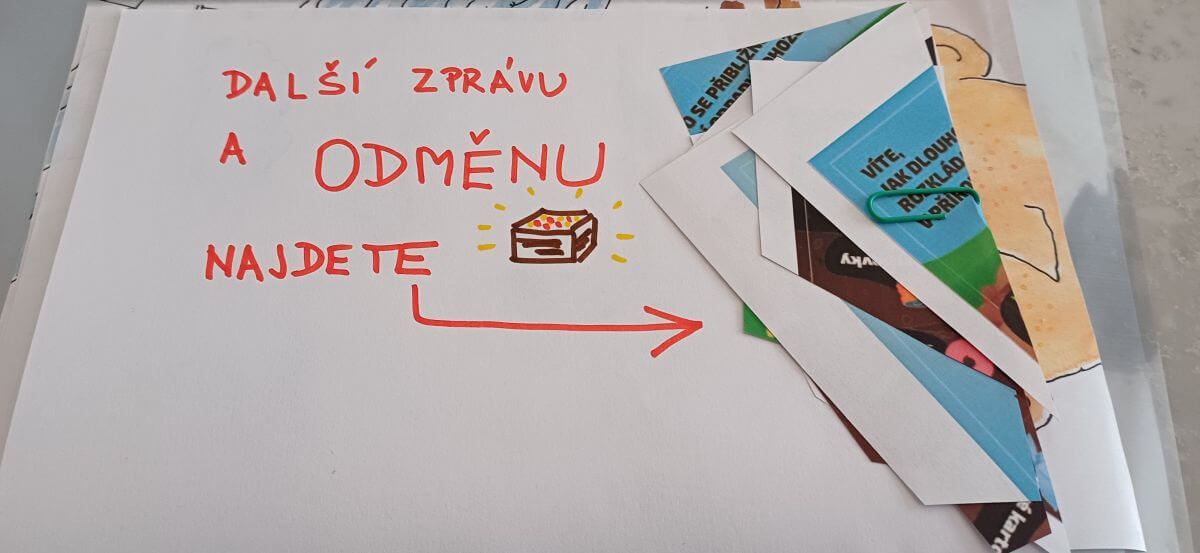 DALŠÍ ZPRÁVU
A ODMĚNU
NAJDETE
SE PŘIBLIŽN
VÍTE,
JAK DLOUHO
ROZKLÁD
V PŘÍRO